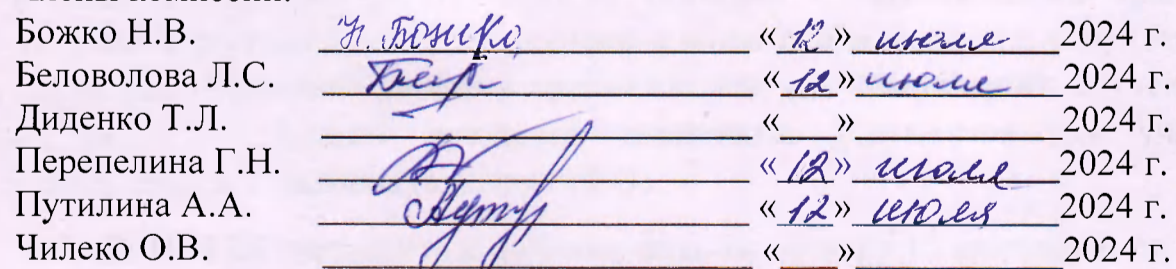 Божко Н.В. Н. Божко «12» июля 2024 г.
Беловолова Л.С. «12» июля 2024 г.
Диденко Т.Л. « » 2024 г.
Перепелина Г.Н. «12» июля 2024 г.
Путилина А.А. «12» июля 2024 г.
Чилеко О.В. « » 2024 г.